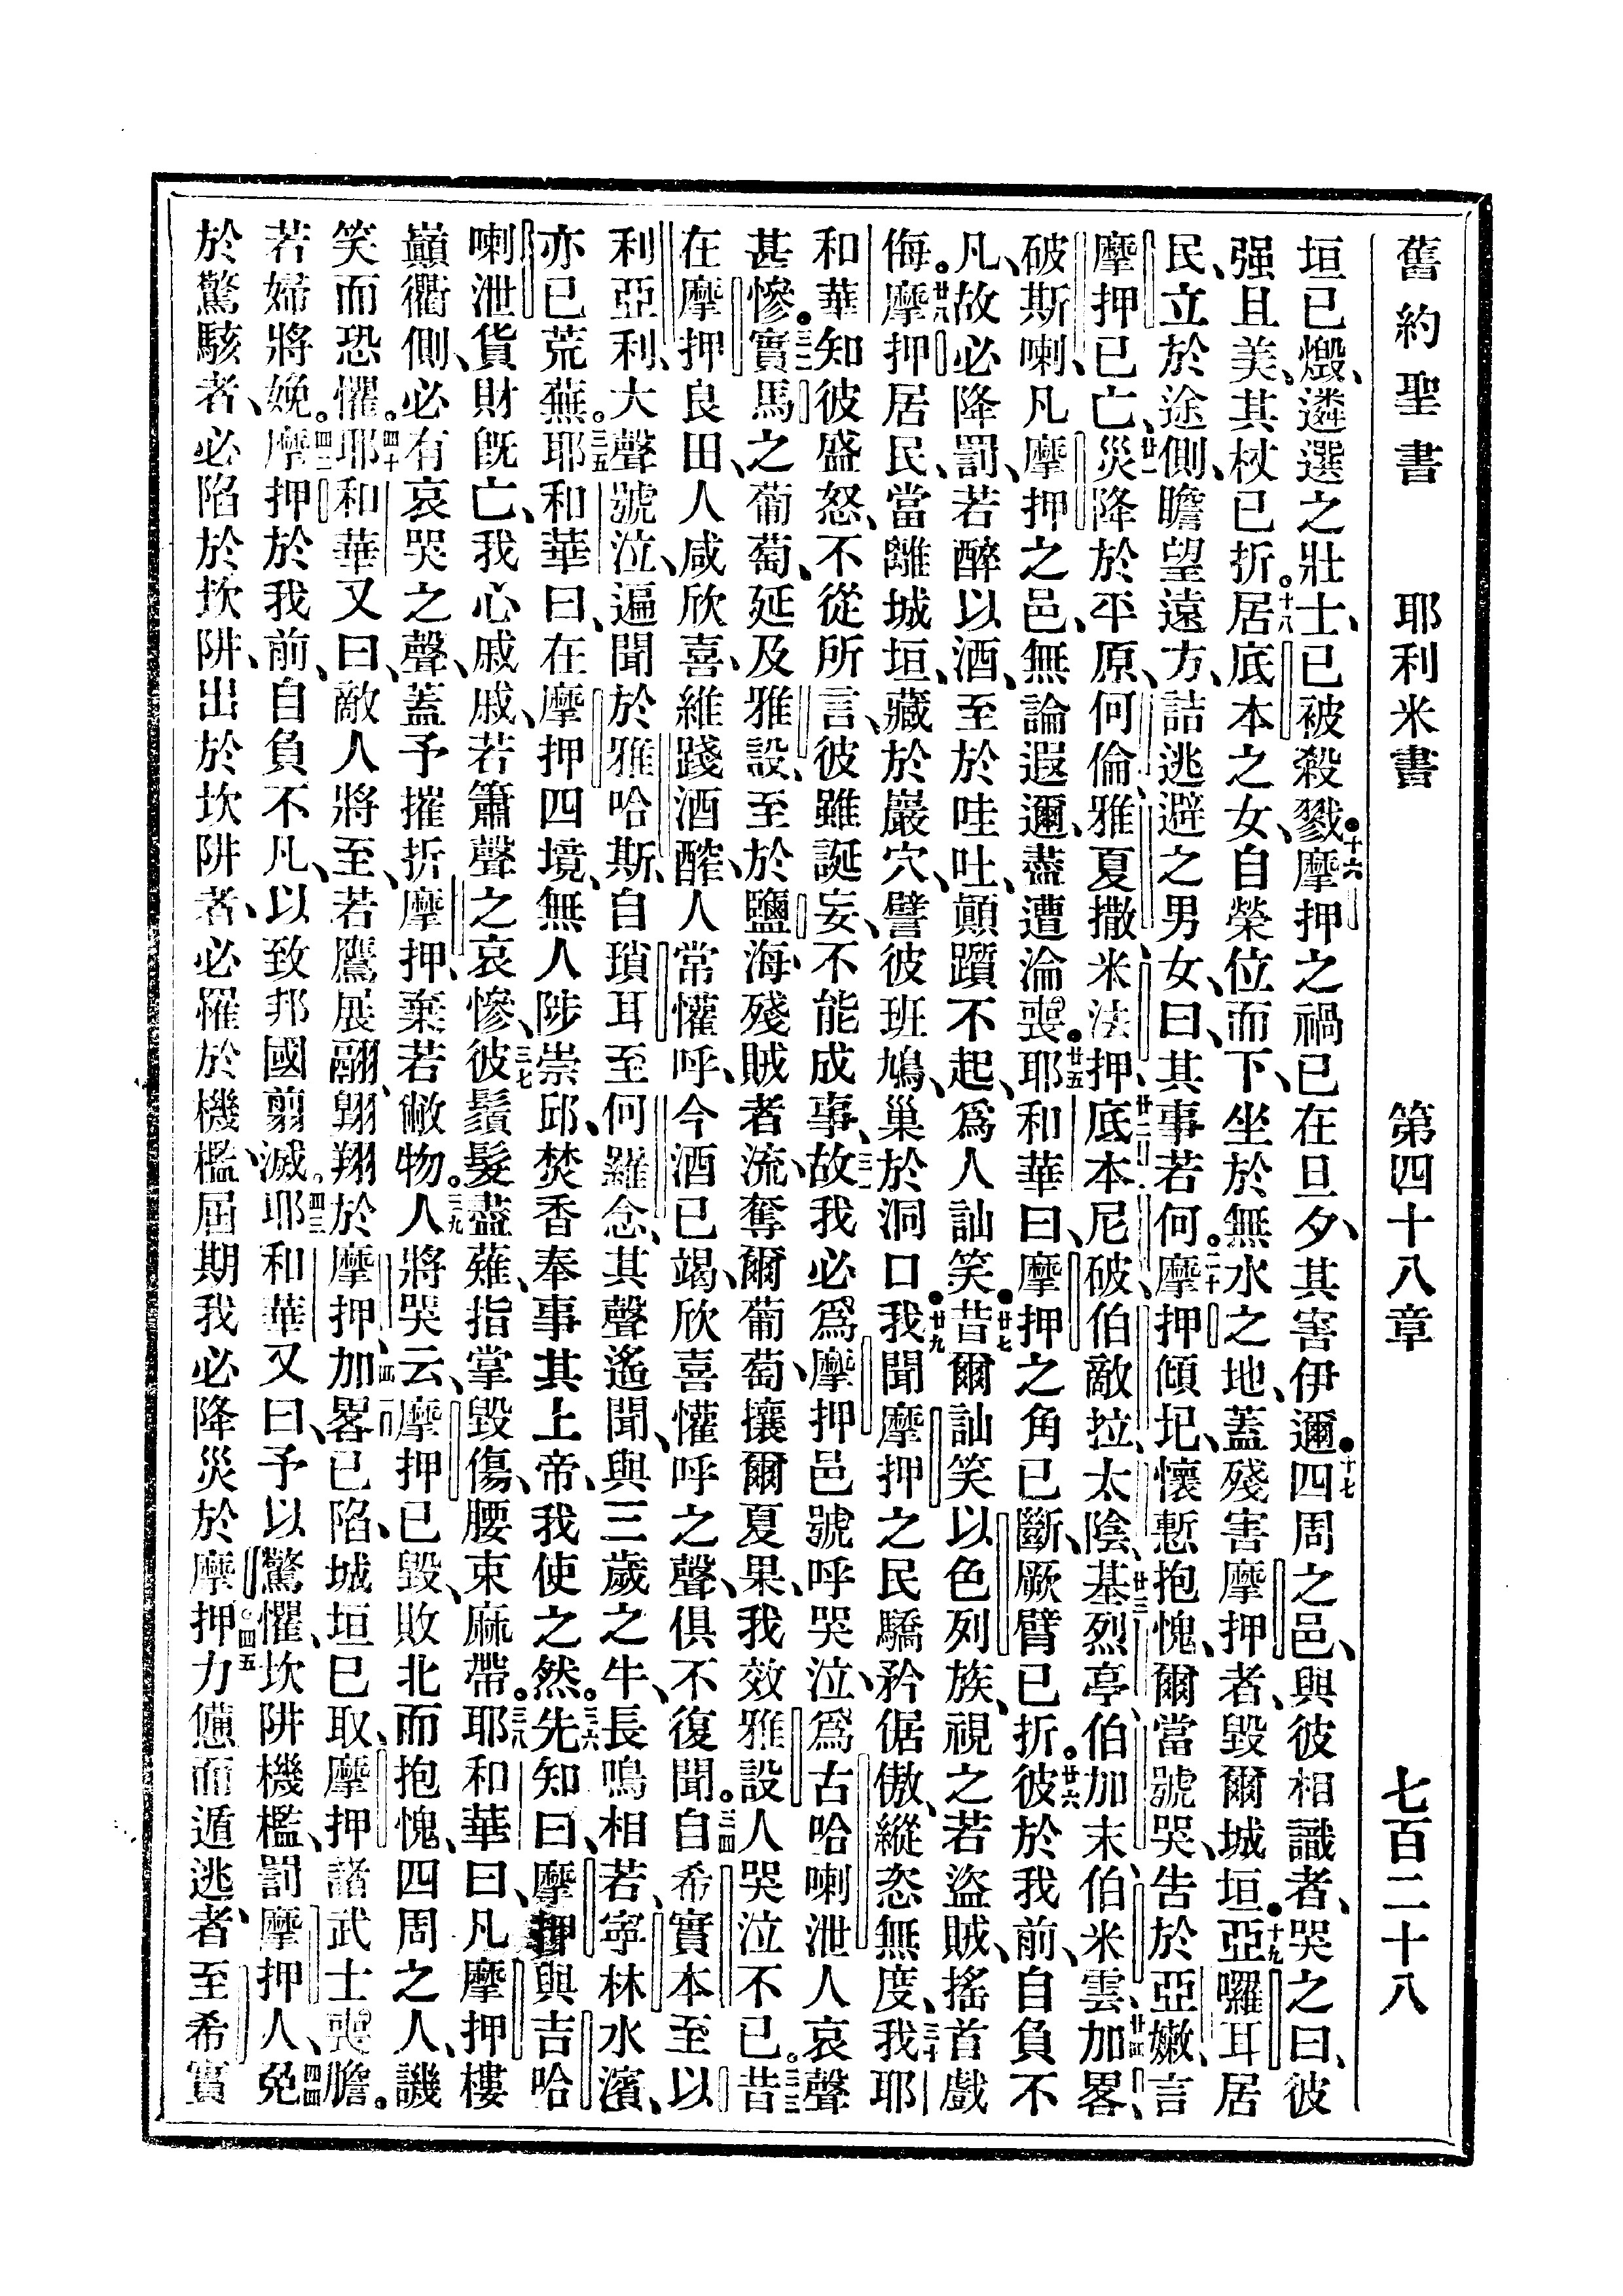 舊約聖書 耶利米書 第四十八章 七百二十八
垣已燬、遴選之壯士、已被殺戮。十六摩押之禍已在旦夕、其害伊邇。十七四周之邑、與彼相識者、哭之曰、彼
强且美、其杖已折。十八居底本之女、自榮位而下、坐於無水之地、蓋殘害摩押者、毀爾城垣。十九亞囉耳居
民、立於途側、瞻望遠方、詰逃避之男女、曰、其事若何。二十摩押傾圮、懷慙抱愧、爾當號哭、告於亞嫩、言
摩押已亡、廿一災降於平原、何倫、雅夏撒、米法押、廿二底本、尼破、伯敵拉太陰、廿三基烈亭、伯加末、伯米雲、廿四加畧、
破斯喇、凡摩押之邑、無論遐邇、盡遭淪喪。廿五耶和華曰、摩押之角已斷、厥臂已折。廿六彼於我前、自負不
凡、故必降罰、若醉以酒、至於哇吐、顛躓不起、爲人訕笑。廿七昔爾訕笑以色列族、視之若盜賊、搖首戲
侮。廿八摩押居民、當離城垣、藏於巖穴、譬彼班鳩、巢於洞口。廿九我聞摩押之民、驕矜倨傲、縱恣無度、三十我耶
和華知彼盛怒、不從所言、彼雖誕妄、不能成事、三一故我必爲摩押邑號呼哭泣、爲古哈喇泄人哀聲
甚慘。三二實馬之葡萄、延及雅設、至於鹽海、殘賊者流、奪爾葡萄、攘爾夏果、我效雅設人哭泣不已。三三昔
在摩押良田、人咸欣喜、維踐酒醡、人常懽呼、今酒已竭、欣喜懽呼之聲、俱不復聞。三四自希實本至以
利亞利、大聲號泣、遍聞於雅哈斯、自瑣耳至何羅念、其聲遙聞、與三歲之牛、長鳴相若、寧林水濱、
亦已荒蕪。三五耶和華曰、在摩押四境、無人陟崇邱、焚香奉事其上帝、我使之然。三六先知曰、摩押與吉哈
喇泄貨財旣亡、我心戚戚、若簫聲之哀慘、三七彼鬚髮盡薙、指掌毀傷、腰束麻帶。三八耶和華曰、凡摩押樓
巔衢側、必有哀哭之聲、蓋予摧折摩押、棄若敝物。三九人將哭云、摩押已毀、敗北而抱愧、四周之人、譏
笑而恐懼。四十耶和華又曰、敵人將至、若鷹展翮、翺翔於摩押、四一加畧已陷、城垣已取、摩押諸武士喪膽、
若婦將娩。四二摩押於我前、自負不凡、以致邦國翦滅。四三耶和華又曰、予以驚懼、坎阱機檻、罰摩押人、四四免
於驚駭者、必陷於坎阱、出於坎阱者、必罹於機檻、屆期我必降災於摩押。四五力憊而遁逃者、至希實